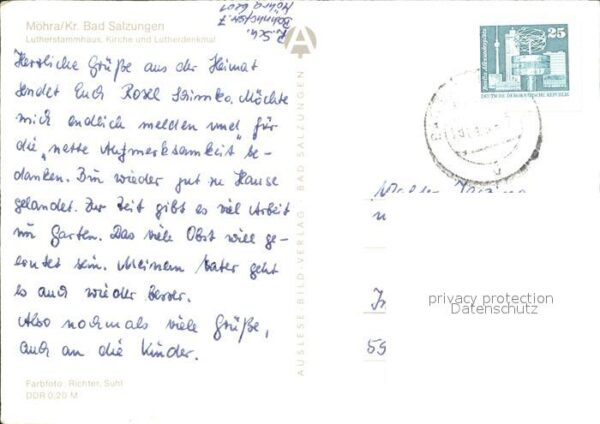 Möhra/Kr. Bad Salzungen
Lutherstammhaus, Kirche und Lutherdenkmal
R. Sch.
Bahnhofstr. 7
Möhra 6201
Herzliche Grüße aus der Heimat
sendet Euch Rosel Schimko. Möchte
mich endlich melden und für
die "nette Aufmerksamkeit be-
danken. Bin wieder gut zu Hause
gelandet. Zur Zeit gibt es viel Arbeit
im Garten. Das viele Obst will ge-
erntet sein. Meinem Vater geht
es auch wieder besser.
Also nochmals viele Grüße,
auch an die Kinder.
Farbfoto: Richter, Suhl
DDR 0,20 M
AUSLESE-BILD-VERLAG · BAD SALZUNGEN
25
Berlin, Alexanderplatz
DEUTSCHE DEMOKRATISCHE REPUBLIK
59
privacy protection
Datenschutz